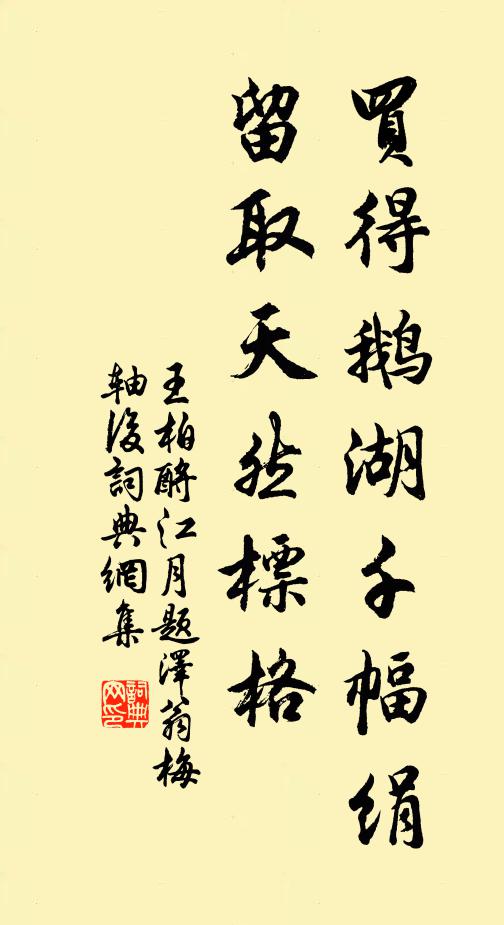 買得鵝湖千幅絹
留取天然標格
王柏酹江月題澤翁梅
軸後詞典網集
詞典网印